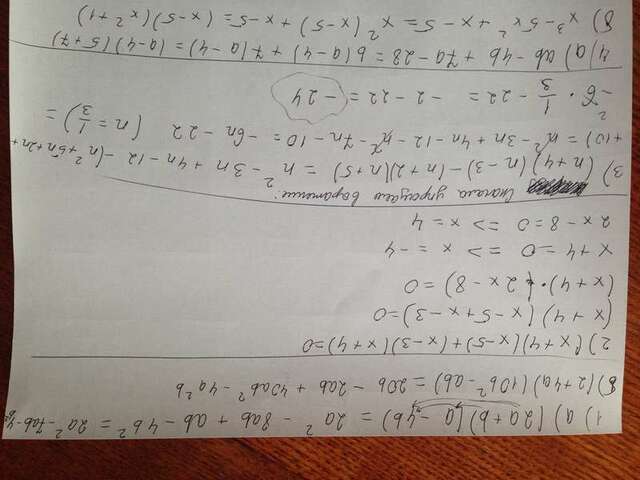 1) а) (2a+b)(a-4b) = 2a² - 8ab + ab - 4b² = 2a² - 7ab - 4b²
б) (2+4a)(10b²-ab) = 20b - 2ab + 40ab² - 4a²b
2) (x+4)(x-5)+(x-3)(x+4)=0
(x+4)(x-5+x-3)=0
(x+4)·(2x-8)=0
x+4=0 => x=-4
2x-8=0 => x=4
Сначала упрощаем выражение:
3) (n+4)(n-3)-(n+2)(n+5) = n² - 3n + 4n - 12 - (n²+5n+2n+
+10) = n² - 3n + 4n - 12 - n² - 7n - 10 = -6n - 22 (n = 1/3) =
-6 · 1/3 - 22 = -2 - 22 = -24
4) а) ab - 4b + 7a - 28 = b(a-4) + 7(a-4) = (a-4)(5+7)
б) x³ - 5x² + x - 5 = x²(x-5) + x - 5 = (x-5)(x²+1)